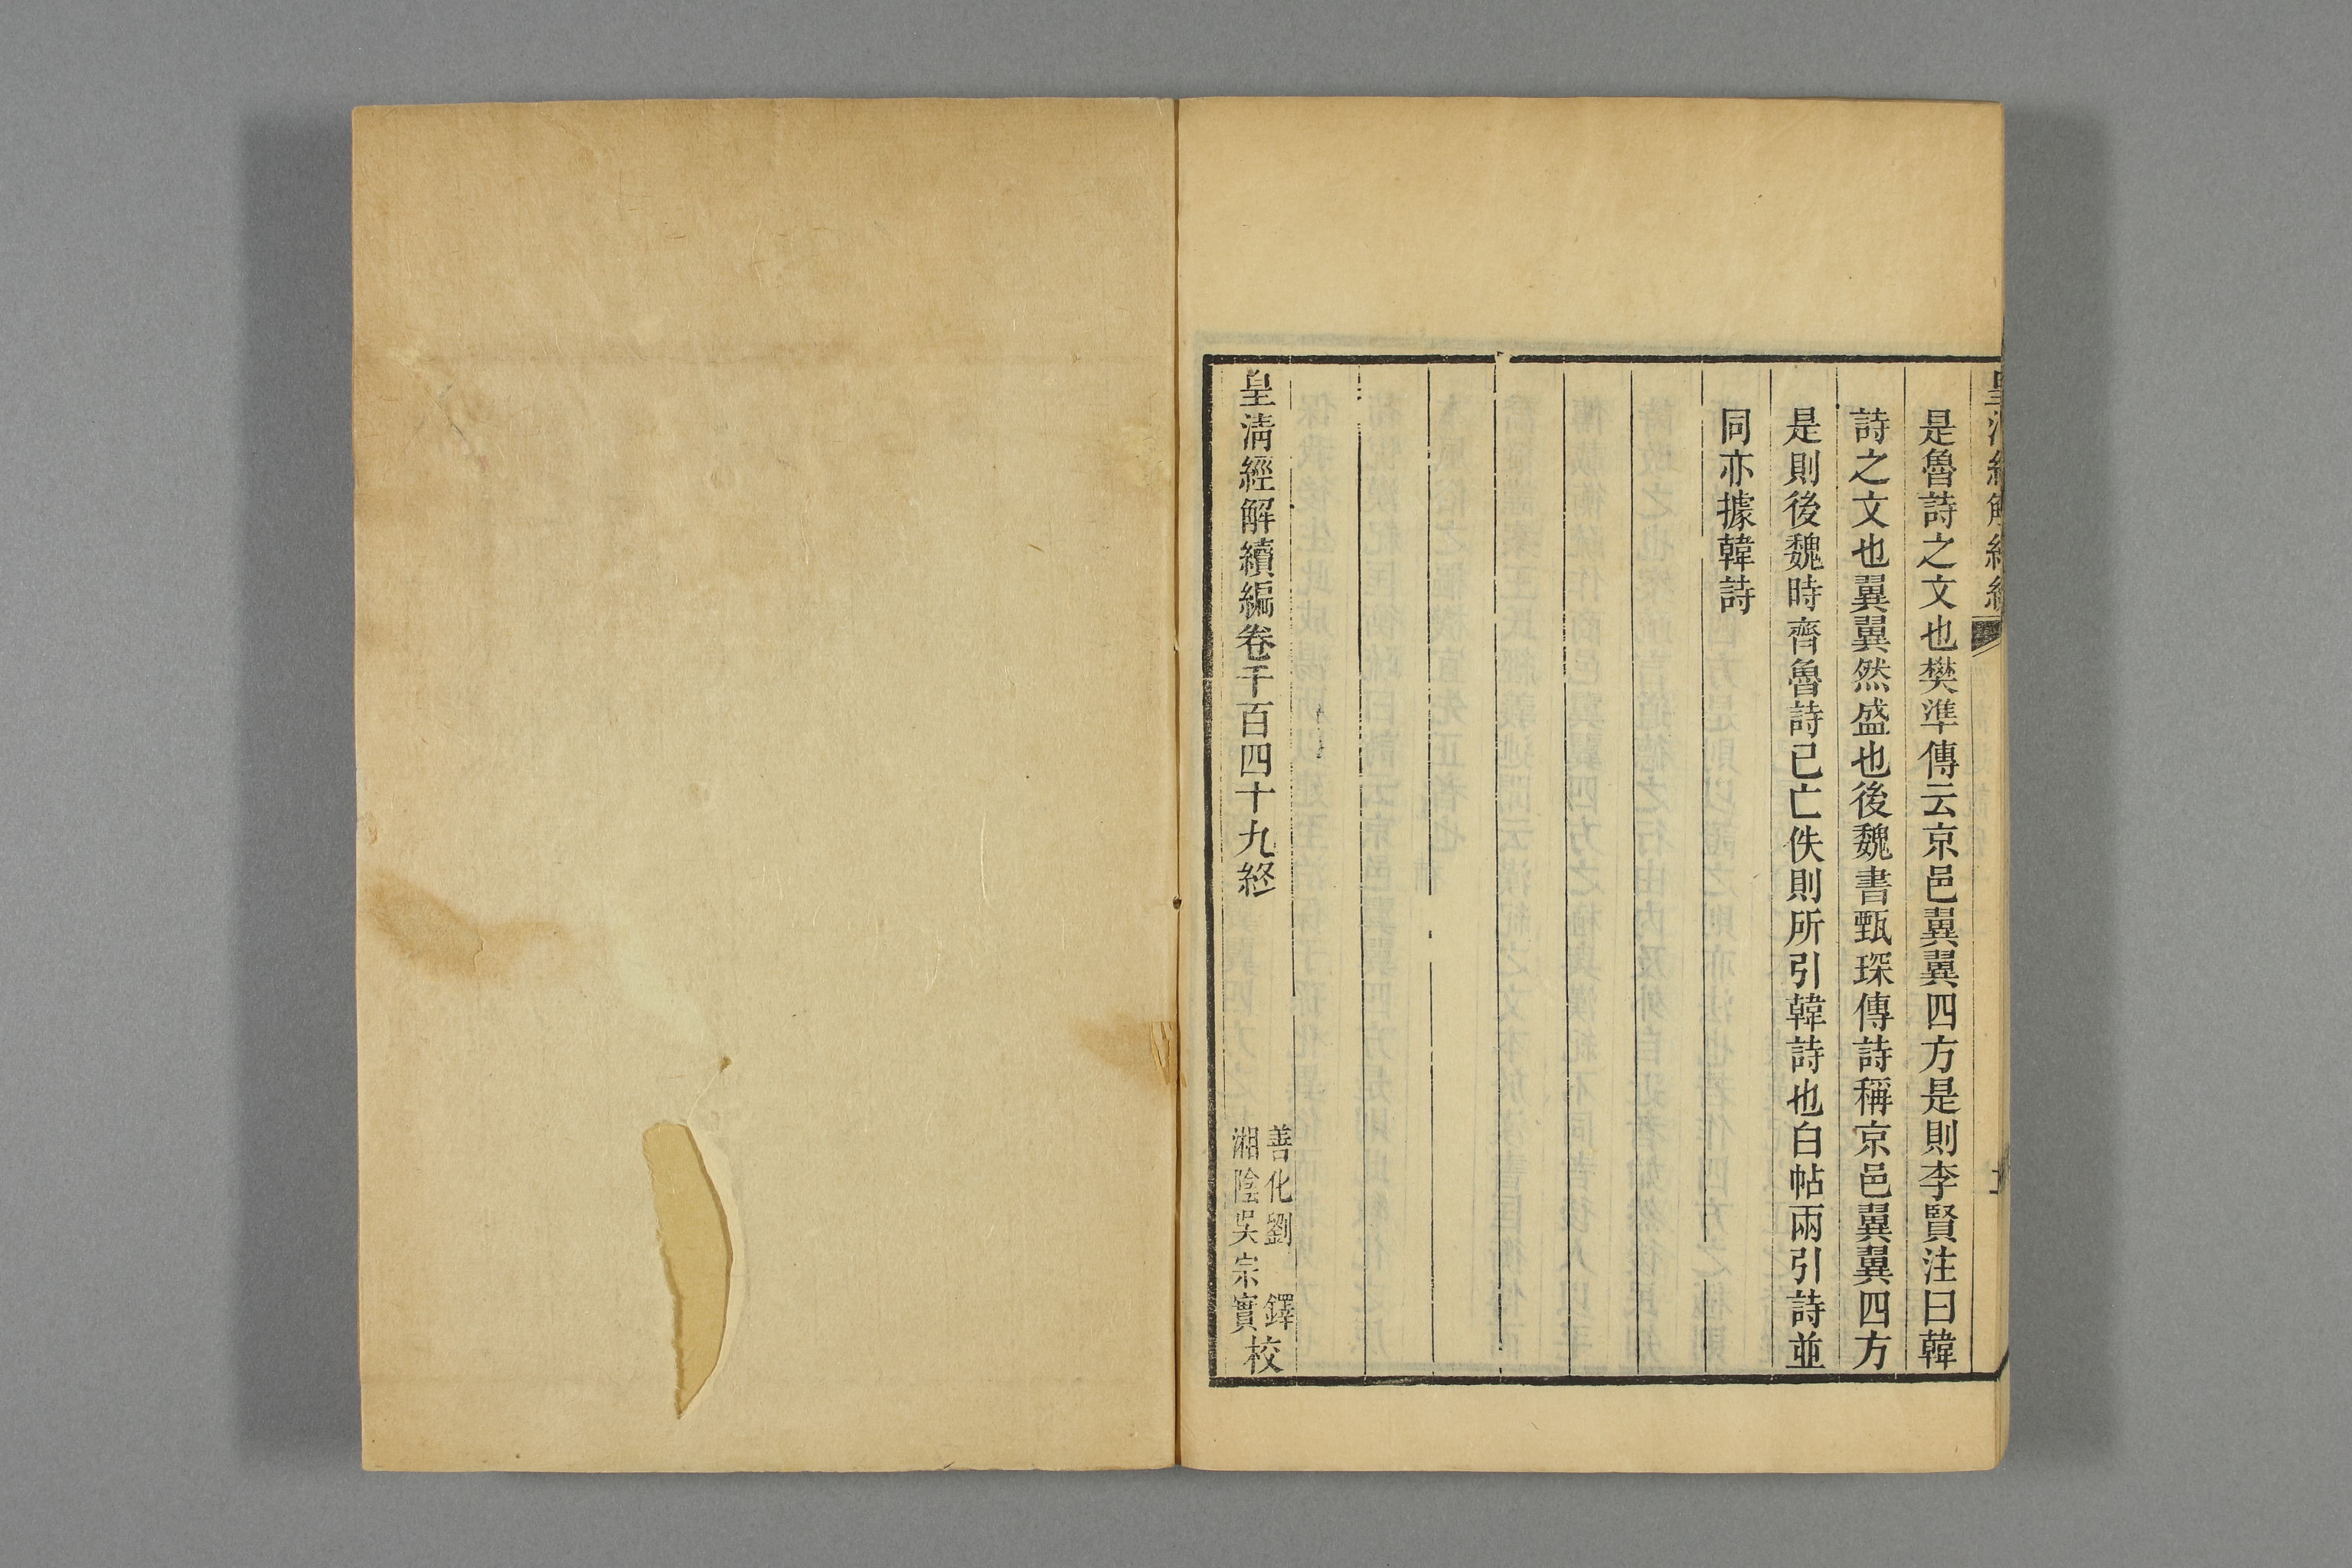 皇清經解續編
是魯詩之文也樊準傳云京邑翼翼四方是則李賢注曰韓
詩之文也翼翼然盛也後魏書甄琛傳詩稱京邑翼翼四方
是則後魏時齊魯詩已亡佚則所引韓詩也白帖兩引詩並
同亦據韓詩
皇清經解續編卷千百四十九終
善化劉鐸
湘陰吳宗實
校